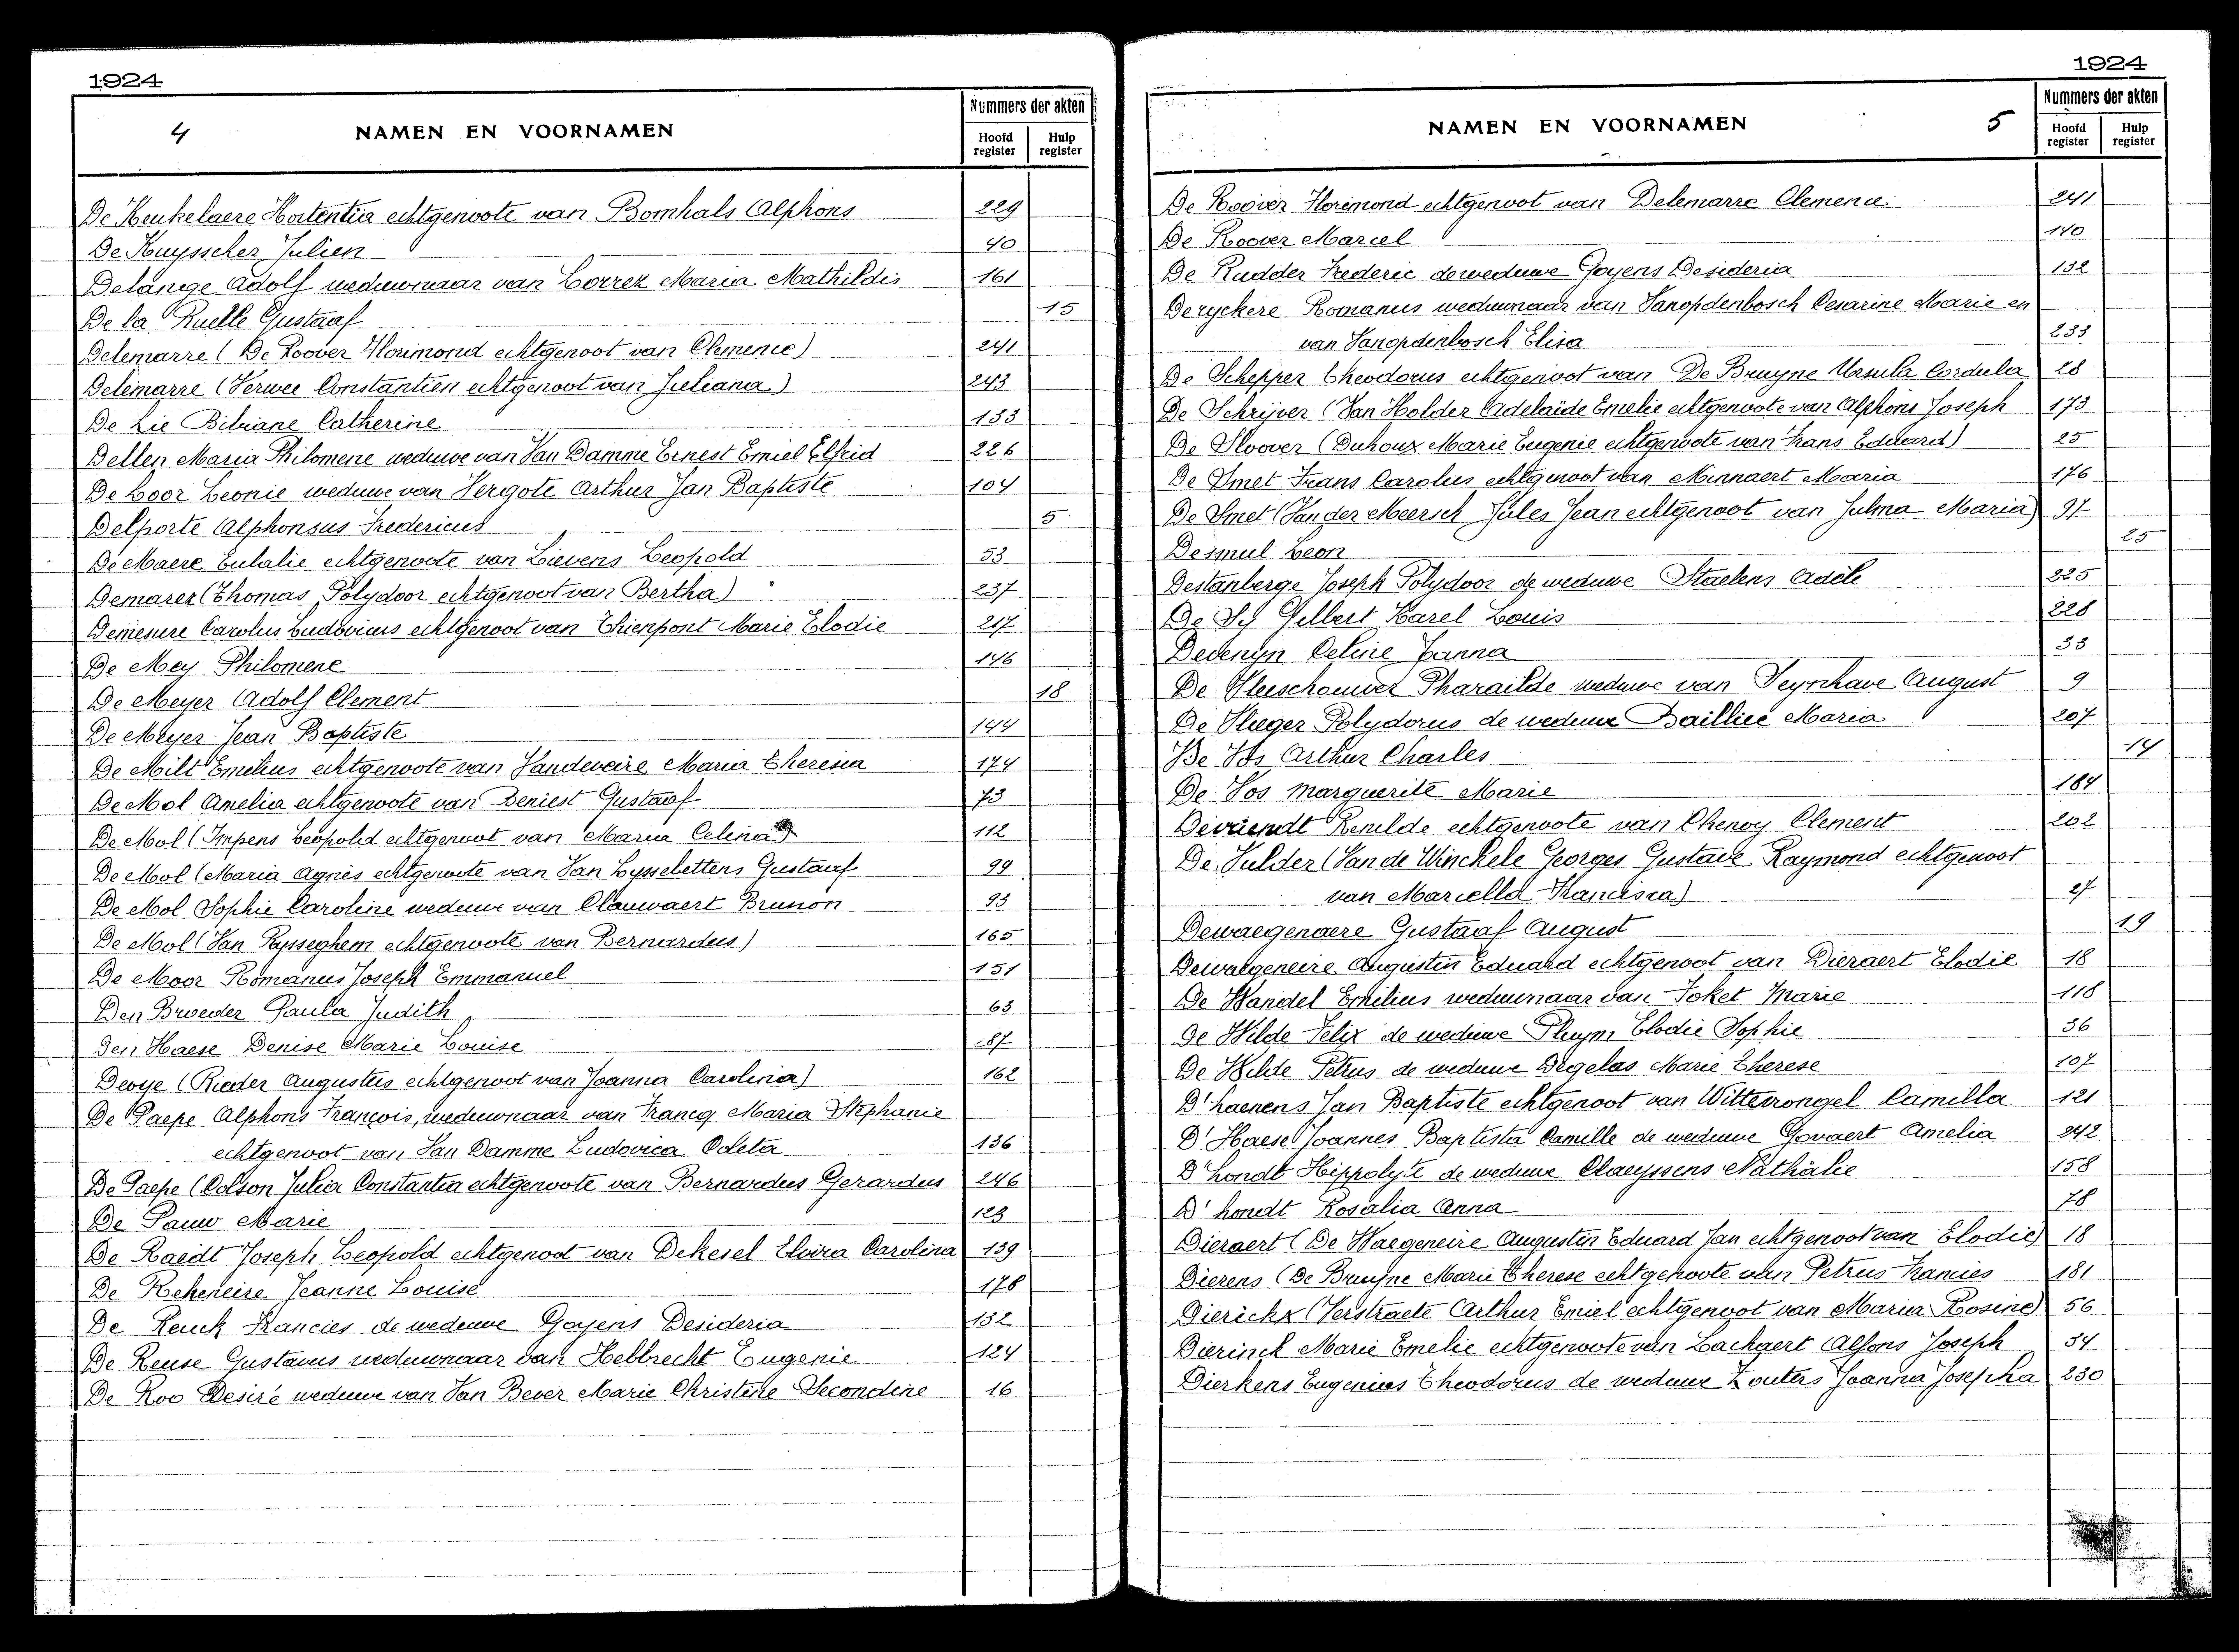 1924
4 NAMEN EN VOORNAMEN
Nummers der akten
Hoofd register Hulp register
De Keukelaere Hortentia echtgenoote van Bomhals Alphons 229
De Kuysscher Julien 40
Delange Adolf weduwnaar van Lorrez Maria Mathildis 161
De la Ruelle Gustaaf 15
Delemarre (De Roover Florimond echtgenoot van Clemence) 241
Delemarre (Verwee Constantien echtgenoot van Juliana) 243
De Lie Bibiane Catherine 133
Dellen Maria Philomene weduwe van Van Damme Ernest Emiel Elfrid 226
De Loor Leonie weduwe van Vergote Arthur Jan Baptiste 104
Delporte Alphonsus Fredericus 5
De Maere Eulalie echtgenoote van Lievens Leopold 53
Demarez (Thomas Polydoor echtgenoot van Bertha) 237
Demesure Carolus Ludovicus echtgenoot van Thienpont Marie Elodie 217
De Mey Philomene 146
De Meyer Adolf Clement 18
De Meyer Jean Baptiste 144
De Milt Emelius echtgenoote van Vandeveire Maria Theresia 174
De Mol Amelia echtgenoote van Beniest Gustaaf 73
De Mol (Impens Leopold echtgenoot van Maria Celina) 112
De Mol (Maria Agnes echtgenoote van Van Lysselettens Gustaaf 99
De Mol Sophie Caroline weduwe van Clauwaert Brunon 93
De Mol (Van Paysseghem echtgenoote van Bernardus) 165
De Moor Romanus Joseph Emmanuel 151
Den Broeder Paula Judith 63
Den Haese Denise Marie Louise 87
Deoye (Rieder Augustus echtgenoot van Joanna Carolina) 162
De Paepe Alphons François, weduwnaar van Francq Maria Stephanie
echtgenoot van Van Damme Ludovica Odela 136
De Paepe (Colson Julia Constantia echtgenoote van Bernardus Gerardus 246
De Pauw Marie 123
De Raedt Joseph Leopold echtgenoot van Dekesel Elvira Carolina 139
De Rekeneire Jeanne Louise 178
De Reuck Francies de weduwe Goyens Desideria 132
De Reuse Gustavus weduwnaar van Hellbrecht Eugenie 124
De Roo Desiré weduwe van Van Bever Marie Christine Secondine 16
1924
NAMEN EN VOORNAMEN 5
Nummers der akten
Hoofd register Hulp register
De Roover Florimond echtgenoot van Delemarre Clemence 241
De Roover Marcel 140
De Rudder Frederic de weduwe Goyens Desideria 132
Deryckere Romanus weduwnaar van Vanopdenbosch Cesarine Marie en
van Vanopdenbosch Elisa 233
De Schepper Theodorus echtgenoot van De Bruyne Ursula Cordula 28
De Schrijver (Van Holder Adelaïde Emelie echtgenoote van Alphons Joseph 173
De Sloover (Duhoux Marie Eugenie echtgenoote van Frans Eduard) 25
De Smet Frans Carolus echtgenoot van Minnaert Maria 176
De Smet (Van der Meersch Jules Jean echtgenoot van Julma Maria) 97
Desmul Leon 25
Destanberge Joseph Polydoor de weduwe Staelens Adele 225
De Sy Gilbert Karel Louis 228
Devenyn Celine Joanna 33
De Vleeschouwer Pharailde weduwe van Teynhave August 9
De Vlieger Polydorus de weduwe Baillieu Maria 207
De Vos Arthur Charles 14
De Vos Marguerite Marie 184
Devriendt Renilde echtgenoote van Chenoy Clement 202
De Vulder (Van de Winckele Georges Gustave Raymond echtgenoot
van Marcella Francisca) 27
Dewaegenaere Gustaaf August 19
Dewaegeneire Augustin Eduard echtgenoot van Dieraert Elodie 18
De Wandel Emilius weduwnaar van Foket Marie 118
De Wilde Felix de weduwe Pluym Elodie Sophie 36
De Wilde Petrus de weduwe Degelas Marie Therese 107
D'haenens Jan Baptiste echtgenoot van Wittevrongel Camilla 121
D'Haese Joannes Baptista Camille de weduwe Govaert Amelia 242
D'hondt Hippolyte de weduwe Claeyssens Nathalie 158
D'hondt Rosalia Anna 78
Dieraert (De Waegeneire Augustin Eduard Jan echtgenoot van Elodie) 18
Dierens (De Bruyne Marie Therese echtgenoote van Petrus Francies 181
Dierickx (Verstraete Arthur Emiel echtgenoot van Maria Rosine) 56
Dierinck Marie Emelie echtgenoote van Lachaert Alfons Joseph 34
Dierkens Eugenius Theodorus de weduwe Wouters Joanna Josepha 230